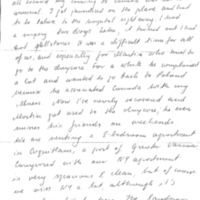 unusual. I got jaundiced on the plane and had
to be taken to the hospital right away. I had
a surgery two days later, it turned out I had
had gallstones. It was a difficult time for all
of us, and especially for who had to
go to the daycare. For a while he complained
a lot and wanted to go back to Poland
because he associated Canada with my
illness. Now I've nearly recovered and
got used to the daycare, he even
misses his friends on weekends.
We are renting a 2-bedroom apartment
in Coquitlam, a part of Greater Vancouver
Compared with our NY apartment
is very spacious & clean, but of course
we miss NY a lot although, it's